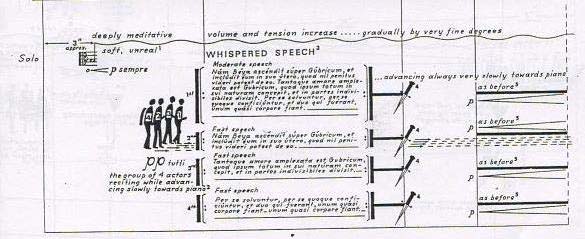 deeply meditative
volume and tension increase ..... gradually by very fine degrees
Solo
3"
approx.
soft, unreal¹
p sempre
WHISPERED SPEECH²
...advancing always very slowly towards piano
Moderate speech
1st
Nam Beya ascendit super Gubricum, et
includit eum in suo utero, quod nil penitus
videri potest de eo. Tantoque amore ample-
xata est Gubricum, quod ipsum totum in
sui naturam concepit, et in partes indivi-
sibiles divisit. Per se solvuntur, per se
quoque conficiuntur, et duo qui fuerant,
unum quasi corpore fiant.
4
p
as before³
Fast speech
2nd
Nam Beya ascendit super Gubricum, et
includit eum in suo utero, quod nil peni-
tus videri potest de eo.
4
as before³
pp tutti
the group of 4 actors
reciting while advan-
cing slowly towards piano²
Fast speech
3rd
Tantoque amore amplexata est Gubricum,
quod ipsum totum in sui naturam con-
cepit, et in partes indivisibiles divisit....
4
p
as before³
Fast speech
4th
Per se solvuntur, per se quoque confi-
ciuntur, et duo qui fuerant, unum quasi
corpore fiant... unum quasi corpore fiant...
4
p
as before³